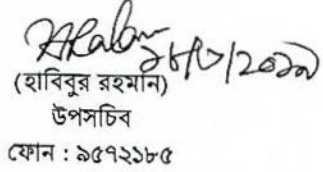 ২০১৯
(হাবিবুর রহমান)
উপসচিব
ফোন : ৯৫৭২১৮৫